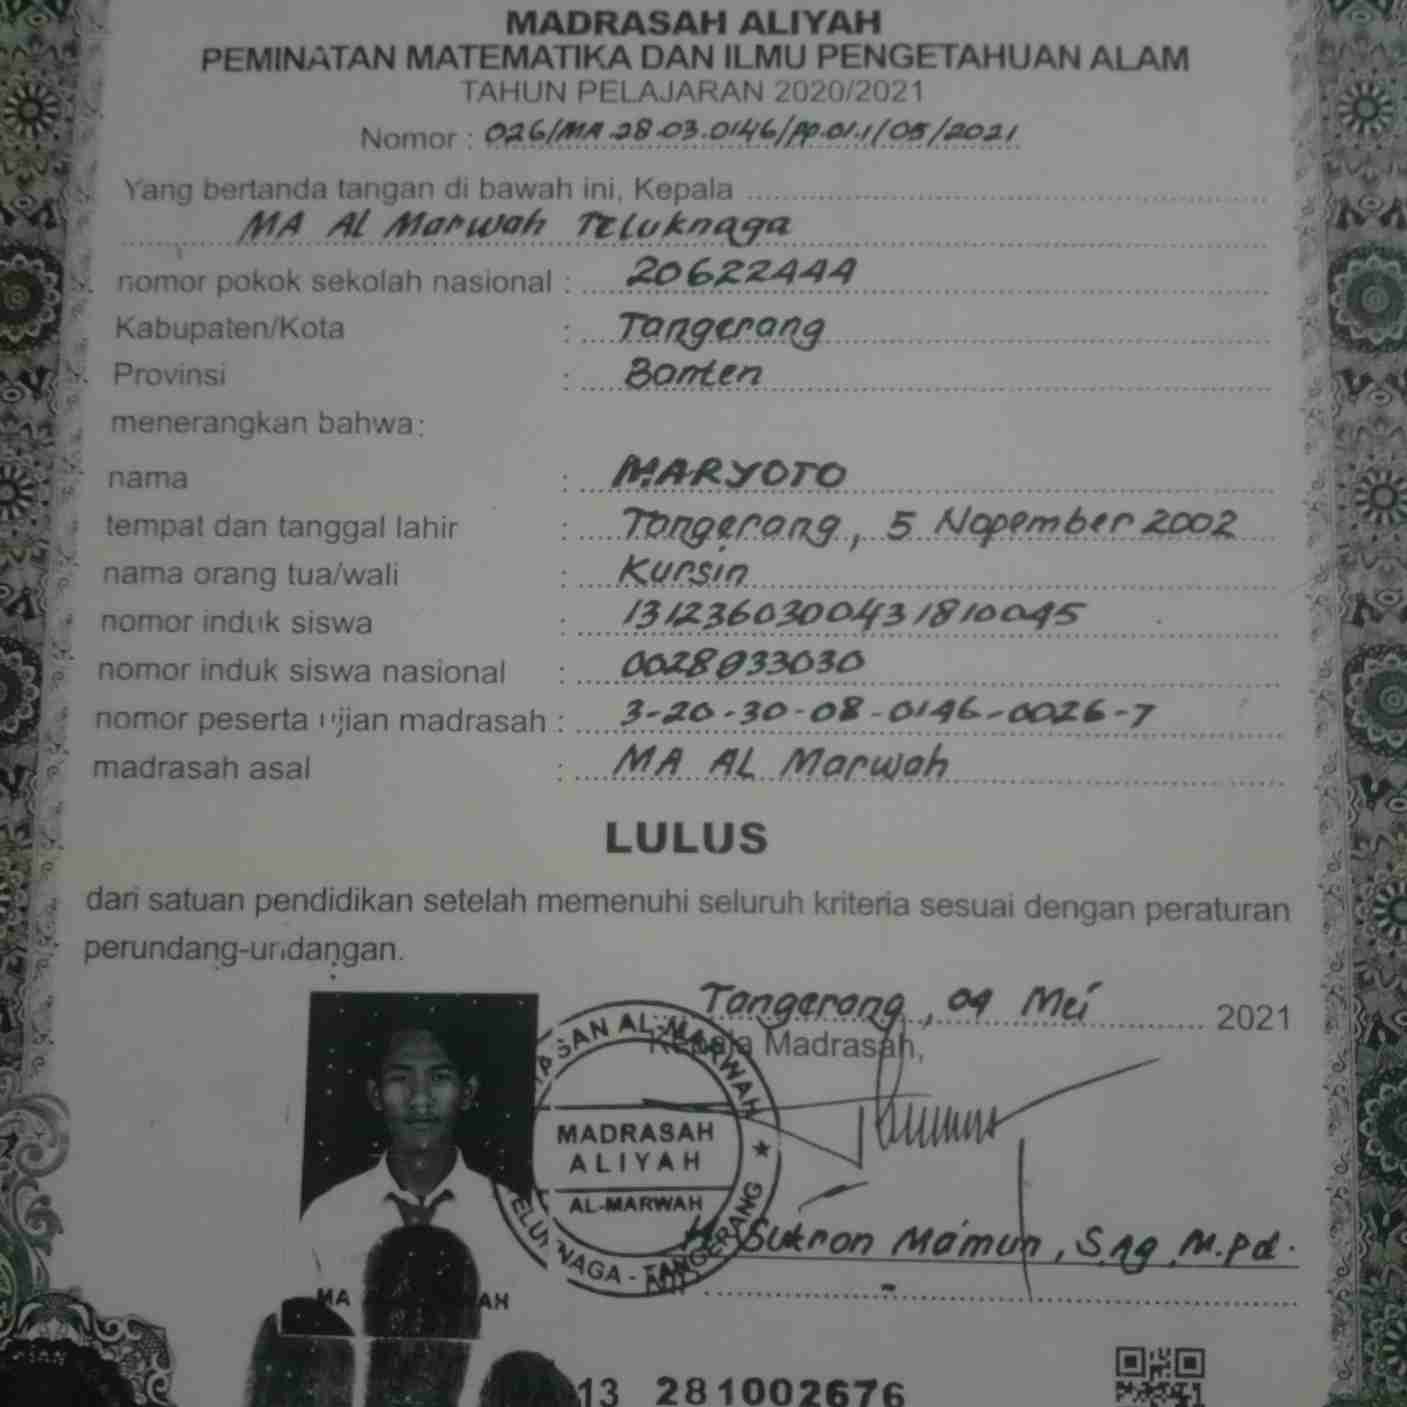 MADRASAH ALIYAH
PEMINATAN MATEMATIKA DAN ILMU PENGETAHUAN ALAM
TAHUN PELAJARAN 2020/2021
Nomor : 026/MA.28.03.0146/PP.01.1/05/2021
Yang bertanda tangan di bawah ini, Kepala
MA Al Marwah Teluknaga
nomor pokok sekolah nasional : 20622444
Kabupaten/Kota : Tangerang
Provinsi : Banten
menerangkan bahwa:
nama : MARYOTO
tempat dan tanggal lahir : Tangerang, 5 Nopember 2002
nama orang tua/wali : Kursin
nomor induk siswa : 1312360300431810045
nomor induk siswa nasional : 0028933030
nomor peserta ujian madrasah : 3-20-30-08-0146-0026-7
madrasah asal : MA AL Marwah
LULUS
dari satuan pendidikan setelah memenuhi seluruh kriteria sesuai dengan peraturan
perundang-undangan.
Tangerang, 04 Mei 2021
Kepala Madrasah,
MADRASAH
ALIYAH
AL-MARWAH
H. Sukron Ma'mun, S.Ag, M.Pd.
13 281002676